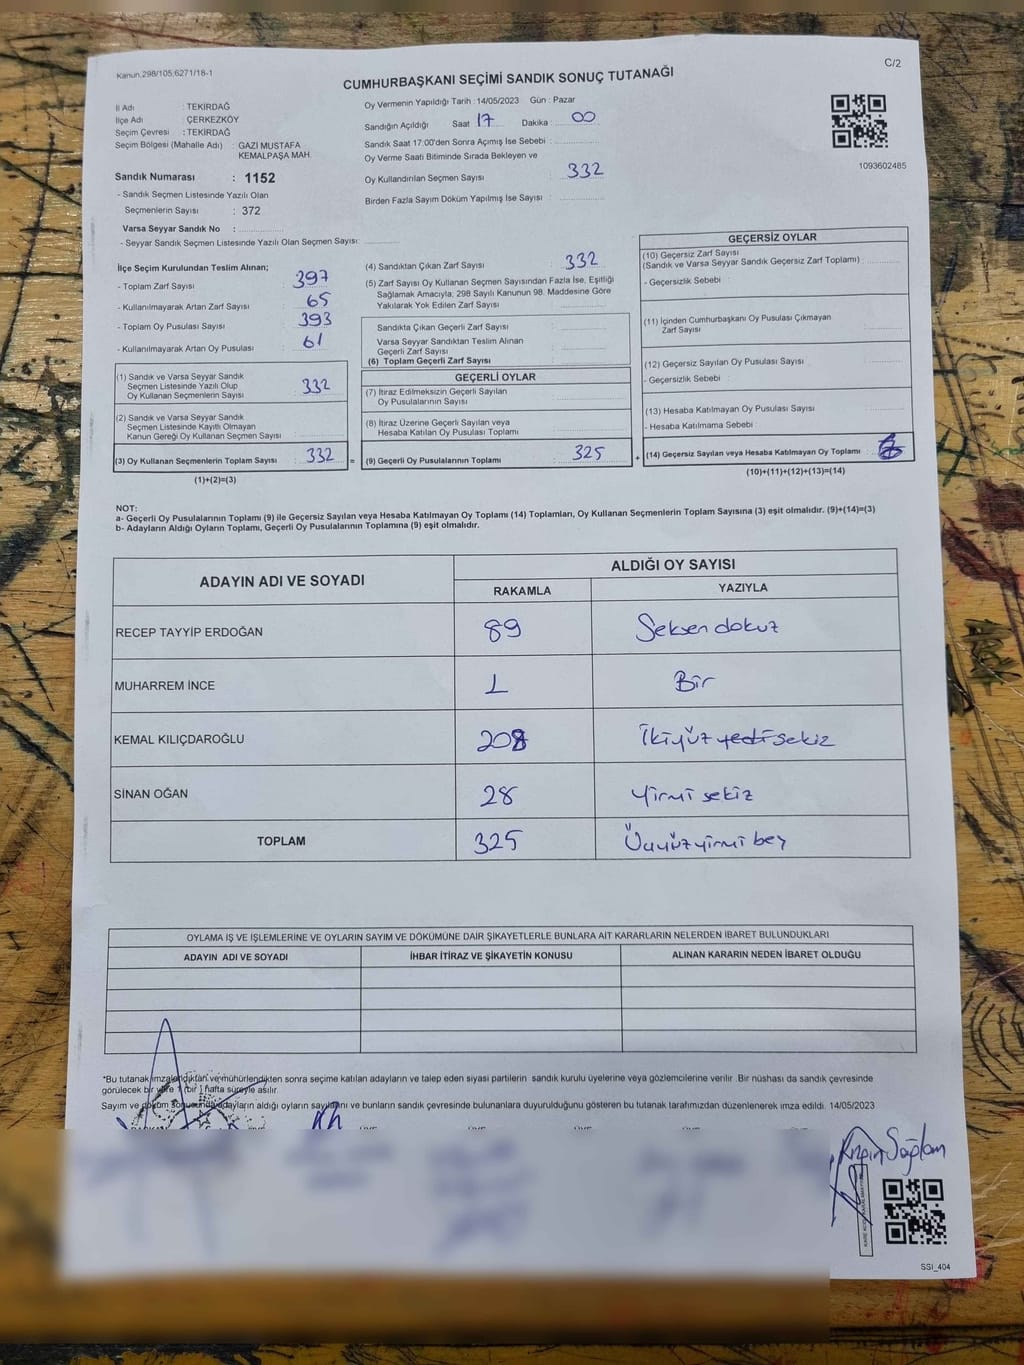 Kanun,298/105,6271/18-1
C/2
CUMHURBAŞKANI SEÇİMİ SANDIK SONUÇ TUTANAĞI
İl Adı : TEKİRDAĞ
İlçe Adı : ÇERKEZKÖY
Seçim Çevresi : TEKİRDAĞ
Seçim Bölgesi (Mahalle Adı) : GAZİ MUSTAFA
KEMALPAŞA MAH.
Sandık Numarası : 1152
- Sandık Seçmen Listesinde Yazılı Olan
Seçmenlerin Sayısı : 372
Varsa Seyyar Sandık No :
- Seyyar Sandık Seçmen Listesinde Yazılı Olan Seçmen Sayısı:
Oy Vermenin Yapıldığı Tarih : 14/05/2023 Gün : Pazar
Sandığın Açıldığı Saat 17 Dakika : 00
Sandık Saat 17:00'den Sonra Açımış İse Sebebi :
Oy Verme Saati Bitiminde Sırada Bekleyen ve
Oy Kullandırılan Seçmen Sayısı : 332
Birden Fazla Sayım Döküm Yapılmış İse Sayısı :
1093602485
İlçe Seçim Kurulundan Teslim Alınan;
- Toplam Zarf Sayısı : 397
- Kullanılmayarak Artan Zarf Sayısı : 65
- Toplam Oy Pusulası Sayısı : 393
- Kullanılmayarak Artan Oy Pusulası : 61
(1) Sandık ve Varsa Seyyar Sandık
Seçmen Listesinde Yazılı Olup
Oy Kullanan Seçmenlerin Sayısı : 332
(2) Sandık ve Varsa Seyyar Sandık
Seçmen Listesinde Kayıtlı Olmayan
Kanun Gereği Oy Kullanan Seçmen Sayısı :
(3) Oy Kullanan Seçmenlerin Toplam Sayısı : 332 =
(1)+(2)=(3)
(4) Sandıktan Çıkan Zarf Sayısı : 332
(5) Zarf Sayısı Oy Kullanan Seçmen Sayısından Fazla İse, Eşitliği
Sağlamak Amacıyla; 298 Sayılı Kanunun 98. Maddesine Göre
Yakılarak Yok Edilen Zarf Sayısı :
Sandıkta Çıkan Geçerli Zarf Sayısı :
Varsa Seyyar Sandıktan Teslim Alınan
Geçerli Zarf Sayısı :
(6) Toplam Geçerli Zarf Sayısı :
GEÇERLİ OYLAR
(7) İtiraz Edilmeksizin Geçerli Sayılan
Oy Pusulalarının Sayısı :
(8) İtiraz Üzerine Geçerli Sayılan veya
Hesaba Katılan Oy Pusulası Toplamı :
(9) Geçerli Oy Pusulalarının Toplamı : 325 +
GEÇERSİZ OYLAR
(10) Geçersiz Zarf Sayısı
(Sandık ve Varsa Seyyar Sandık Geçersiz Zarf Toplamı) :
- Geçersizlik Sebebi :
(11) İçinden Cumhurbaşkanı Oy Pusulası Çıkmayan
Zarf Sayısı :
(12) Geçersiz Sayılan Oy Pusulası Sayısı :
- Geçersizlik Sebebi :
(13) Hesaba Katılmayan Oy Pusulası Sayısı :
- Hesaba Katılmama Sebebi :
(14) Geçersiz Sayılan veya Hesaba Katılmayan Oy Toplamı :
(10)+(11)+(12)+(13)=(14)
NOT:
a- Geçerli Oy Pusulalarının Toplamı (9) ile Geçersiz Sayılan veya Hesaba Katılmayan Oy Toplamı (14) Toplamları, Oy Kullanan Seçmenlerin Toplam Sayısına (3) eşit olmalıdır. (9)+(14)=(3)
b- Adayların Aldığı Oyların Toplamı, Geçerli Oy Pusulalarının Toplamına (9) eşit olmalıdır.
ADAYIN ADI VE SOYADI ALDIĞI OY SAYISI
RAKAMLA YAZIYLA
RECEP TAYYİP ERDOĞAN 89 Seksen dokuz
MUHARREM İNCE 1 Bir
KEMAL KILIÇDAROĞLU 208 İkiyüz yedi sekiz
SİNAN OĞAN 28 Yirmi sekiz
TOPLAM 325 Üçyüz yirmi beş
OYLAMA İŞ VE İŞLEMLERİNE VE OYLARIN SAYIM VE DÖKÜMÜNE DAİR ŞİKAYETLERLE BUNLARA AİT KARARLARIN NELERDEN İBARET BULUNDUKLARI
ADAYIN ADI VE SOYADI İHBAR İTİRAZ VE ŞİKAYETİN KONUSU ALINAN KARARIN NEDEN İBARET OLDUĞU
*Bu tutanak imzalandıktan ve mühürlendikten sonra seçime katılan adayların ve talep eden siyasi partilerin sandık kurulu üyelerine veya gözlemcilerine verilir. Bir nüshası da sandık çevresinde
görülecek bir yere 1 (bir) hafta süreyle asılır.
Sayım ve döküm sonucunda adayların aldığı oyların sayılarını ve bunların sandık çevresinde bulunanlara duyurulduğunu gösteren bu tutanak tarafımızdan düzenlenerek imza edildi. 14/05/2023
Sağlam
SSİ_404